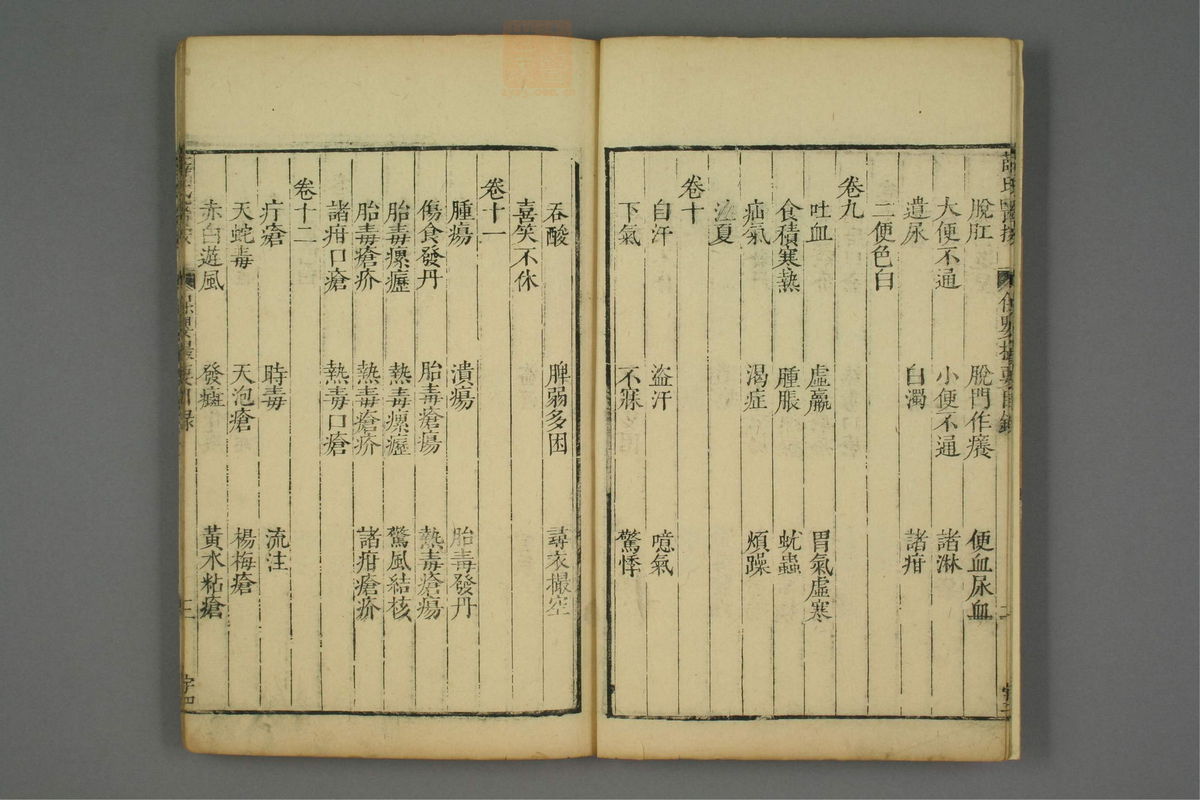 脫肛　脫門作癢　便血尿血
大便不通　小便不通　諸淋
遺尿　白濁　諸疳
二便色白
卷九
吐血　虛羸　胃氣虛寒
食積寒熱　腫脹　蚘蟲
疝氣　渴症　煩躁
注夏
卷十
自汗　盗汗　噫氣
下氣　不寐　驚悸
吞酸　脾弱多困　尋衣撮空
喜笑不休
卷十一
腫瘍　潰瘍　胎毒發丹
傷食發丹　胎毒瘡瘍　熱毒瘡瘍
胎毒瘰癧　熱毒瘰癧　驚風結核
胎毒瘡疥　熱毒瘡疥　諸疳瘡疥
諸疳口瘡　熱毒口瘡
卷十二
疔瘡　時毒　流注
天蛇毒　天泡瘡　楊梅瘡
赤白遊風　發癍　黃水粘瘡